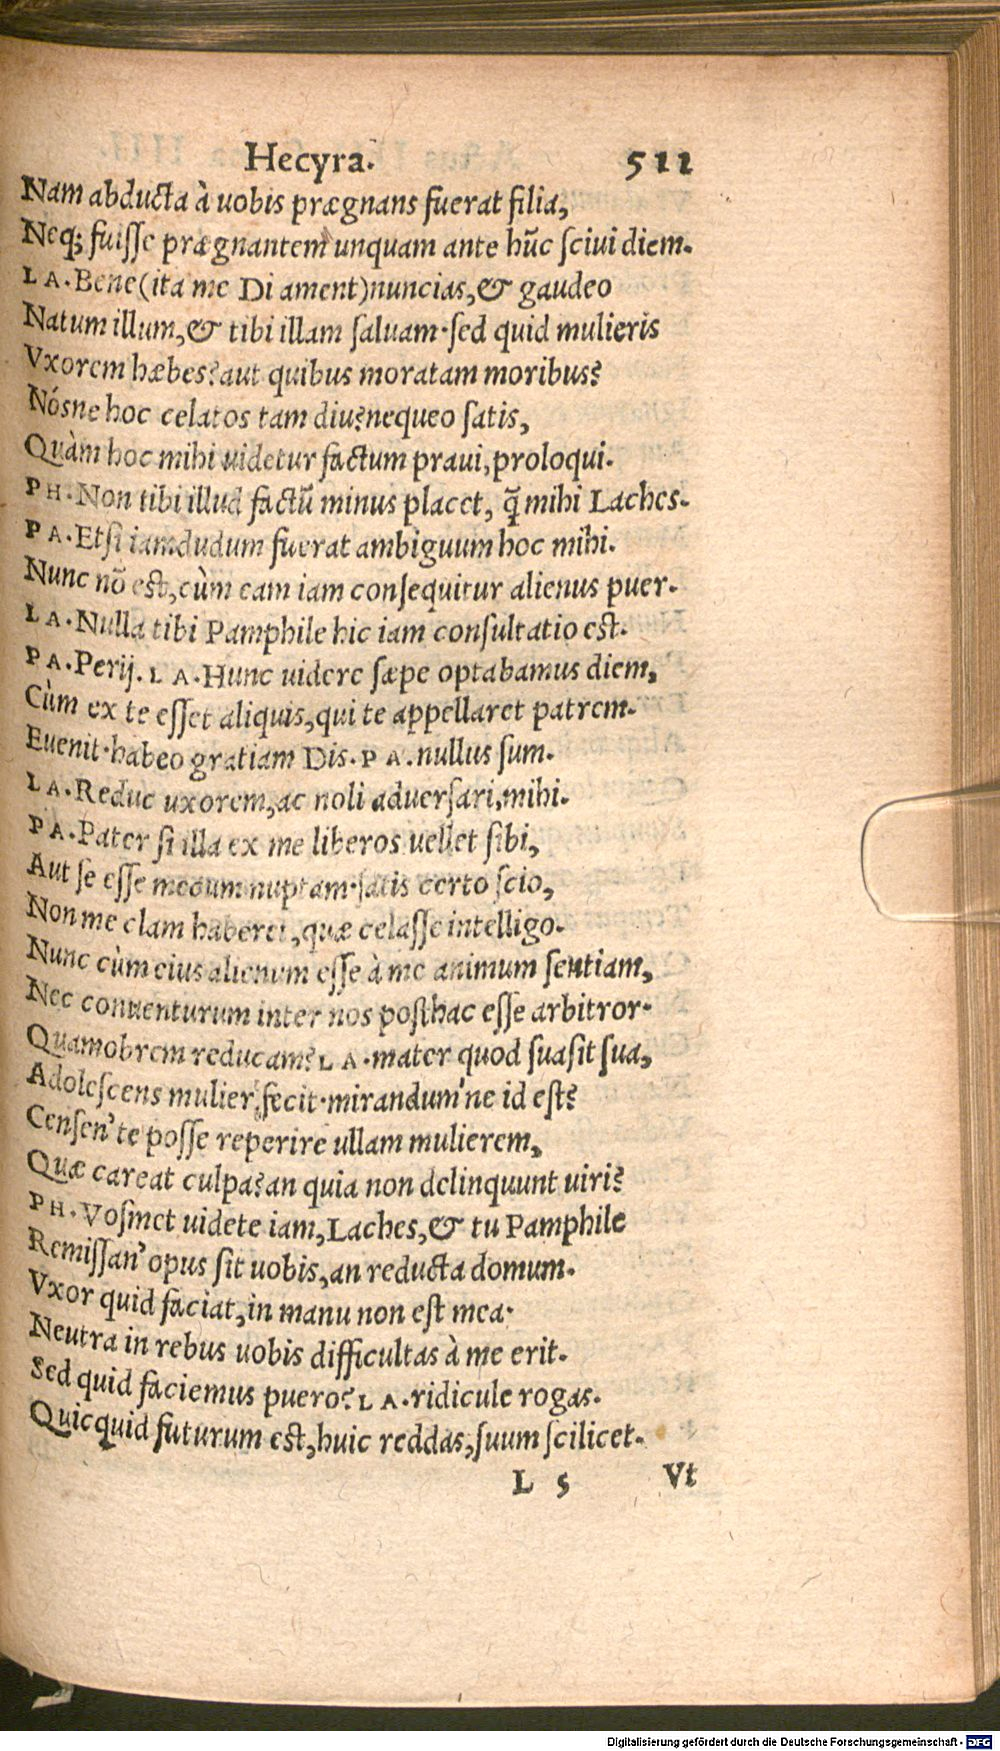 Hecyra. 511
Nam abducta à uobis prægnans fuerat filia,
Neq; fuisse prægnantem unquam ante hūc sciui diem.
LA. Bene (ita me Di ament) nuncias, & gaudeo
Natum illum, & tibi illam saluam. sed quid mulieris
Vxorem hæbes? aut quibus moratam moribus?
Nósne hoc celatos tam diu? nequeo satis,
Quàm hoc mihi uidetur factum praui, proloqui.
PH. Non tibi illud factū minus placet, q̃ mihi Laches.
PA. Etsi iamdudum fuerat ambiguum hoc mihi.
Nunc nō est, cùm eam iam consequitur alienus puer.
LA. Nulla tibi Pamphile hic iam consultatio est.
PA. Perij. LA. Hunc uidere sæpe optabamus diem,
Cùm ex te esset aliquis, qui te appellaret patrem.
Euenit. habeo gratiam Dis. PA. nullus sum.
LA. Reduc uxorem, ac noli aduersari, mihi.
PA. Pater si illa ex me liberos uellet sibi,
Aut se esse mecum nuptam. satis certo scio,
Non me clam haberet, quæ celasse intelligo.
Nunc cùm eius alienum esse à me animum sentiam,
Nec conuenturum inter nos posthac esse arbitror.
Quamobrem reducam? LA. mater quod suasit sua,
Adolescens mulier, fecit. mirandum'ne id est?
Censen' te posse reperire ullam mulierem,
Quæ careat culpa? an quia non delinquunt uiri?
PH. Vosmet uidete iam, Laches, & tu Pamphile
Remissan' opus sit uobis, an reducta domum.
Vxor quid faciat, in manu non est mea.
Neutra in rebus uobis difficultas à me erit.
Sed quid faciemus puero? LA. ridicule rogas.
Quicquid futurum est, huic reddas, suum scilicet.
L 5 Vt
Digitalisierung gefördert durch die Deutsche Forschungsgemeinschaft - DFG